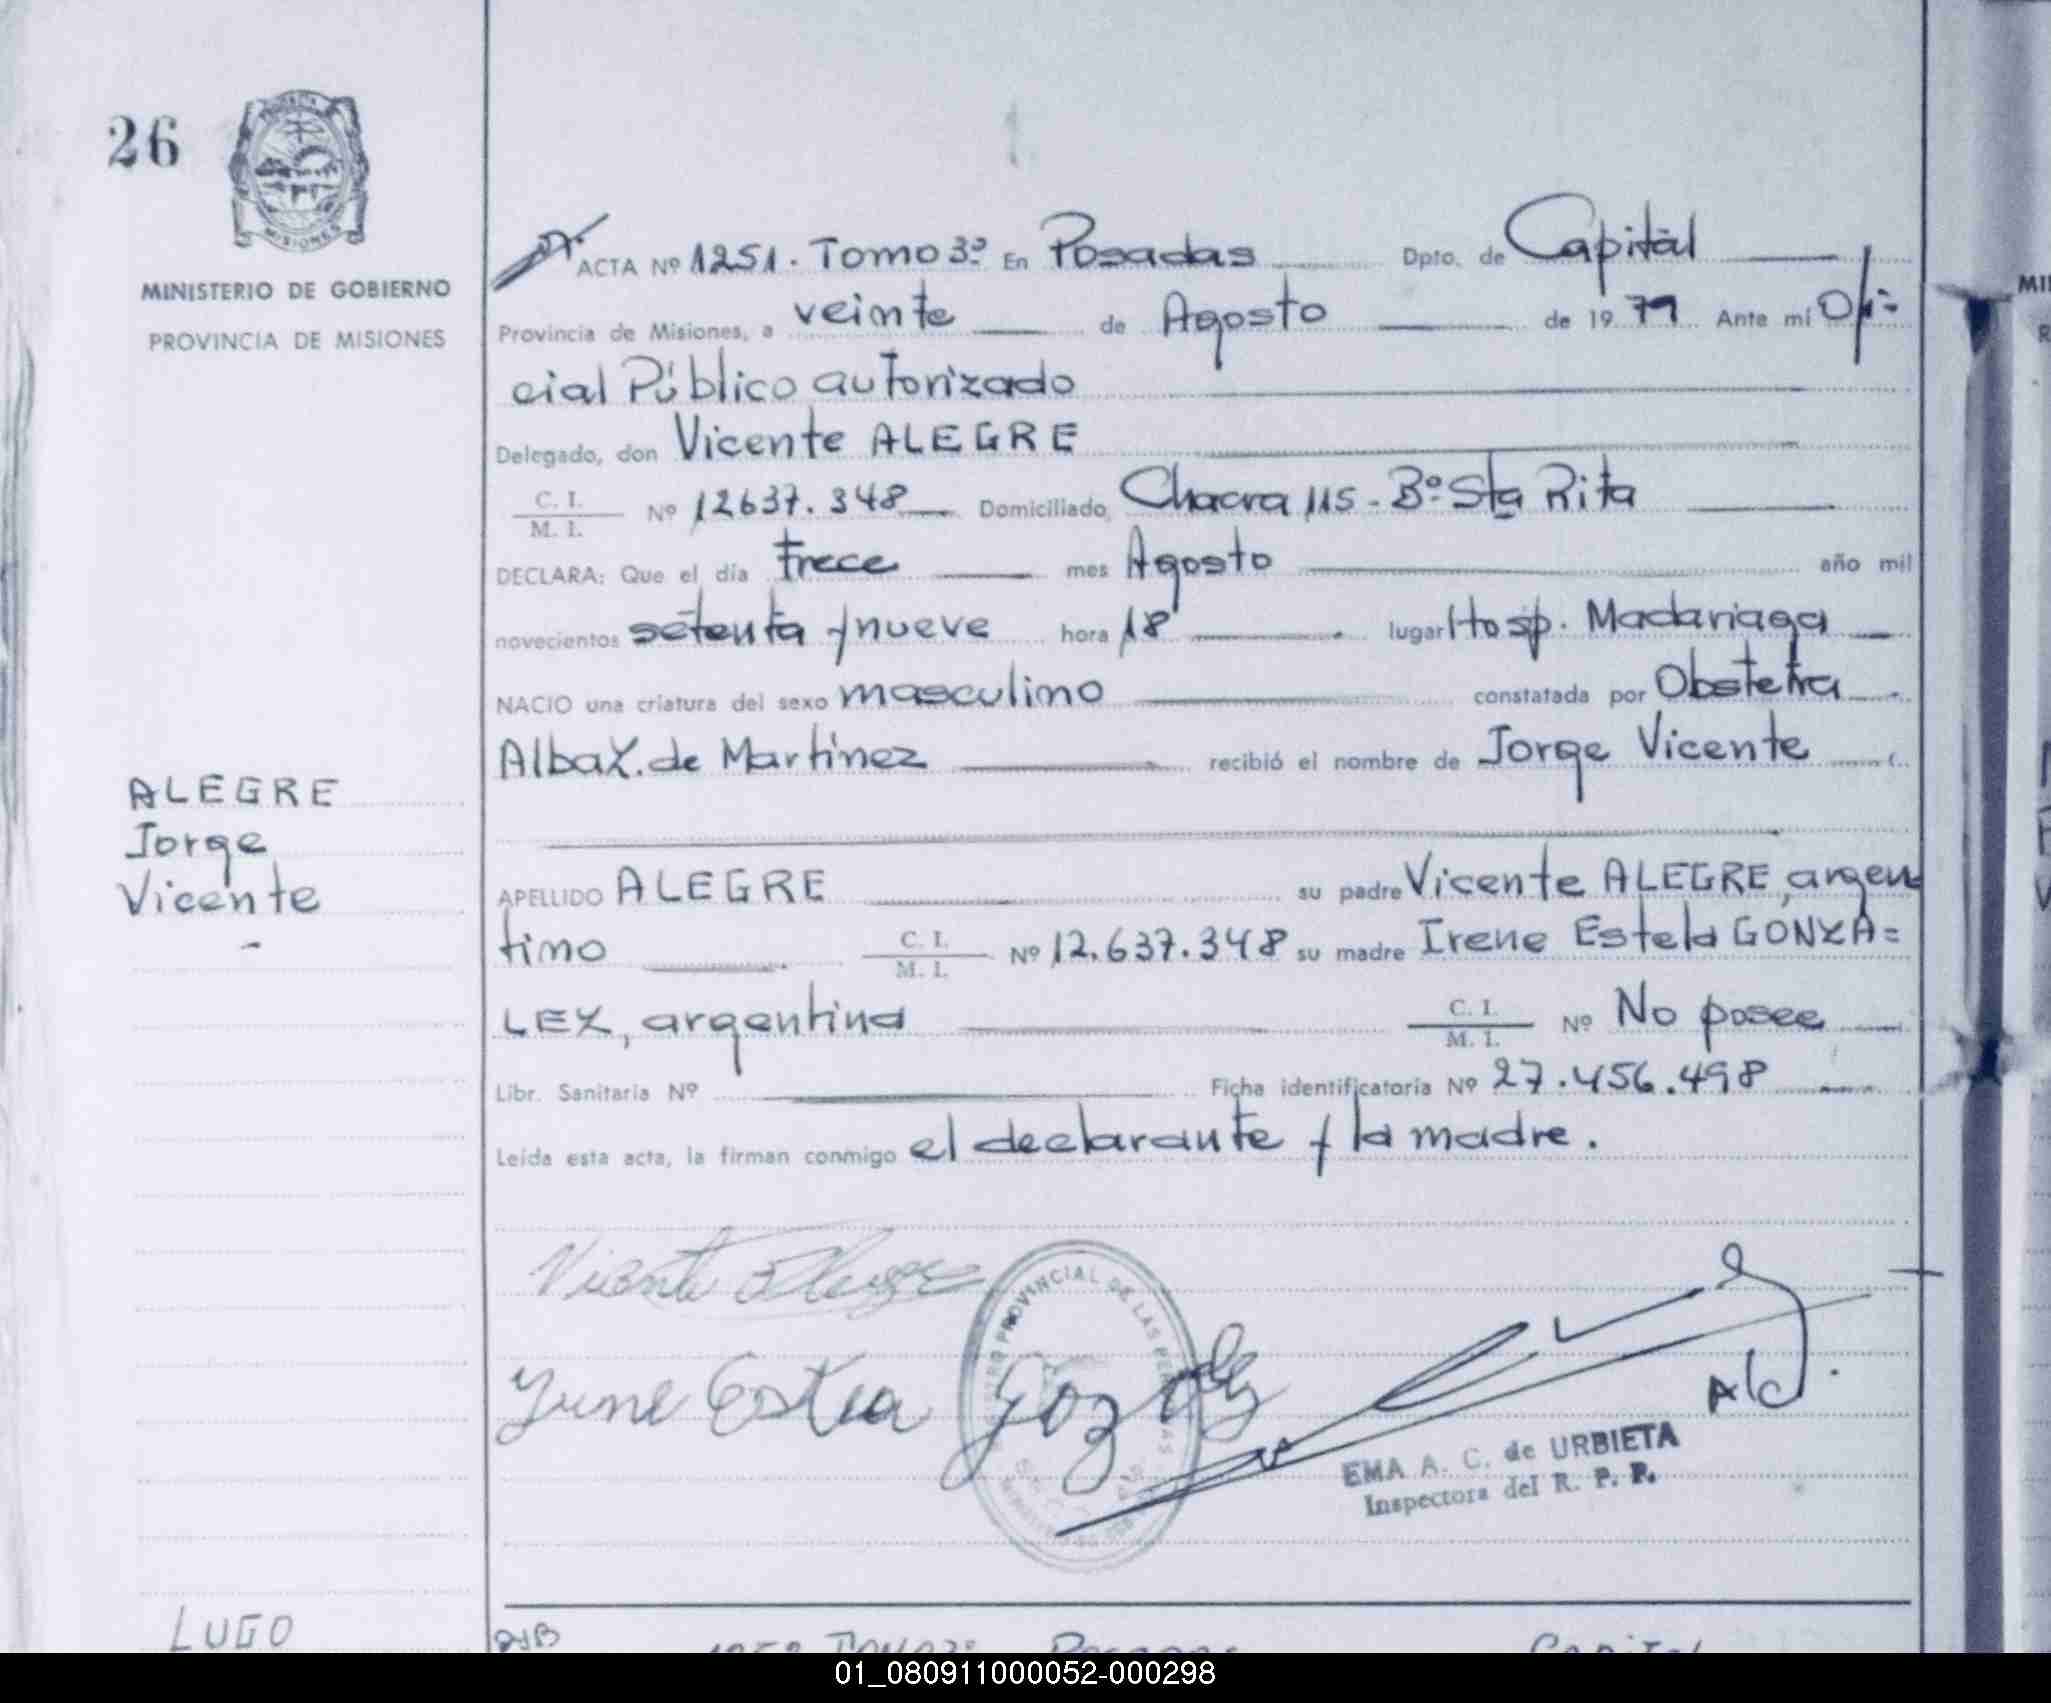 26
MISIONES
MINISTERIO DE GOBIERNO
PROVINCIA DE MISIONES
ACTA Nº 1251. Tomo 3º En Posadas Dpto. de Capital
Provincia de Misiones, a veinte de Agosto de 1979 Ante mí Ofi=
cial Público autorizado
Delegado, don Vicente ALEGRE
C. I.
M. I. Nº 12637.348 Domiciliado, Chacra 115 - Bº Sta Rita
DECLARA: Que el día trece mes Agosto año mil
novecientos setenta y nueve hora 18 lugar Hosp. Madariaga
NACIO una criatura del sexo masculino constatada por Obstetra
Alba Z. de Martinez recibió el nombre de Jorge Vicente
ALEGRE
Jorge
Vicente
-
APELLIDO ALEGRE su padre Vicente ALEGRE, argen
tino C. I. M. I. Nº 12.637.348 su madre Irene Estela GONZA=
LEZ, argentina C. I. M. I. Nº No posee
Libr. Sanitaria Nº Ficha identificatoria Nº 27.456.498
Leída esta acta, la firman conmigo el declarante y la madre.
Vicente Alegre
PROVINCIAL DE LAS PERSONAS
EMA A. C. de URBIETA
Inspectora del R. P. P.
LUGO